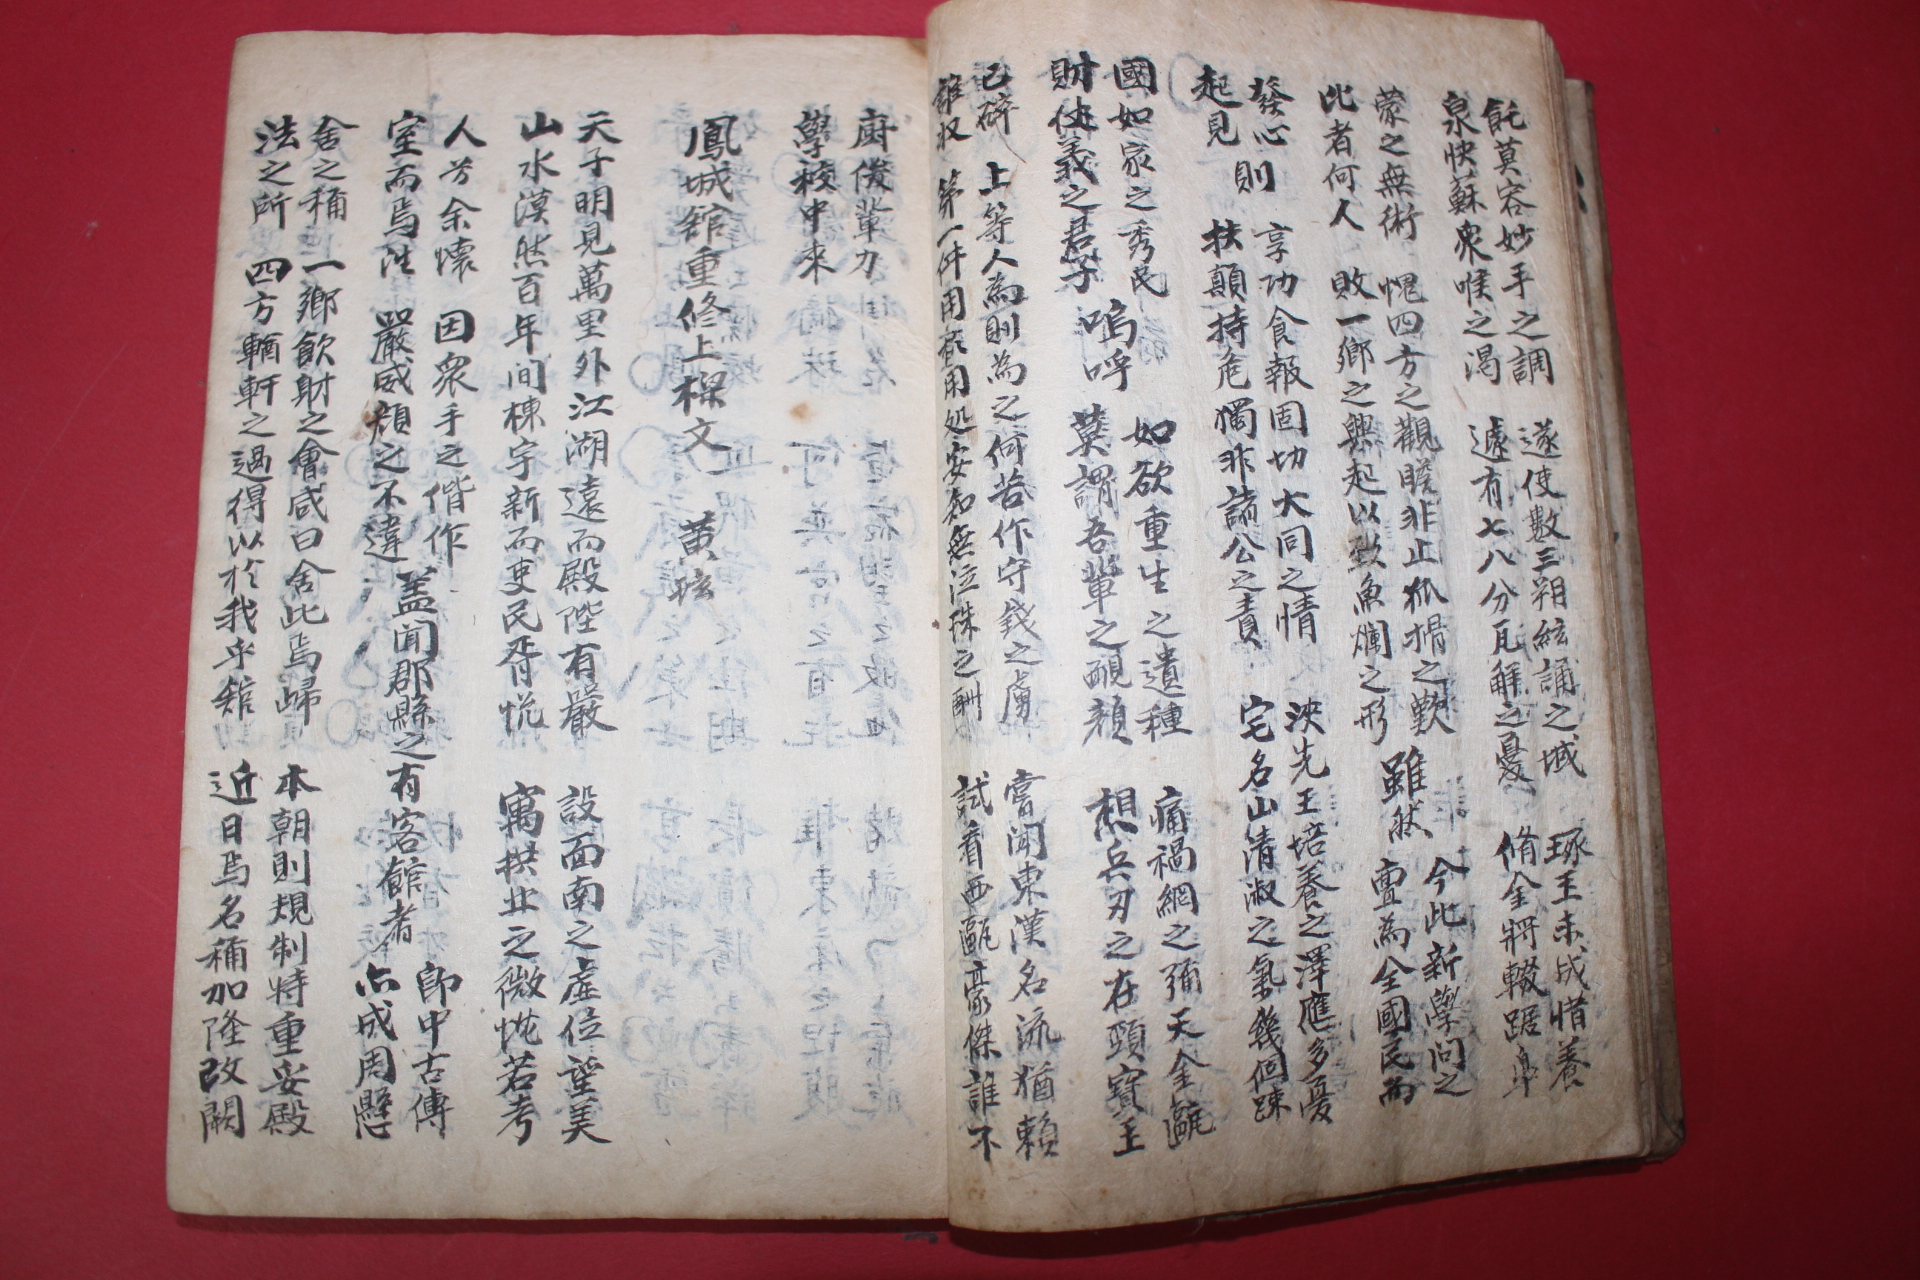 飥莫容妙手之調 遂使數三朔絃誦之城 琢玉未成惜養
泉快蘇衆喉之渴 遽有七八分瓦解之憂 脩金將輟踞臯
蒙之無術 愧四方之觀瞻非止狐搰之歎 今此新學問之
比者何人 敗一鄕之興起以致魚爛之形 雖然 亶爲全國民而
發心 則 享功食報固切大同之情 決先王培養之澤應多憂
起見 扶顚持危獨非諸公之責 宅名山淸淑之氣幾個踈
國如家之秀民 如欲重生之遺種 痛禍網之彌天金甌
財仗義之君子 嗚呼 莫謂吾輩之靦顔 想兵刃之在頸寶玉
已碎 上等人爲則爲之何苦作守錢之虜 嘗聞東漢名流猶賴
雖収 第一件用當用処安知無泣珠之酬 試看西甌豪傑誰不
廚俊輩力
學校中來
鳳城舘重修上樑文 黃
天子明見萬里外江湖遠而殿陛有嚴 設面南之虛位望美
山水漠然百年间棟宇新而吏民胥悅 寓拱北之微忱若考
人兮余懷 因衆手之偕作 盖聞郡縣之有客館者 卽中古傳
室而焉法 嚴咸顔之不違 亦成周懸
舍之稱 一鄕飮財之會咸曰舍此焉歸 本朝則規制特重妥殿
法之所 四方輶軒之過得以於我乎舘 近日焉名稱加隆改闕